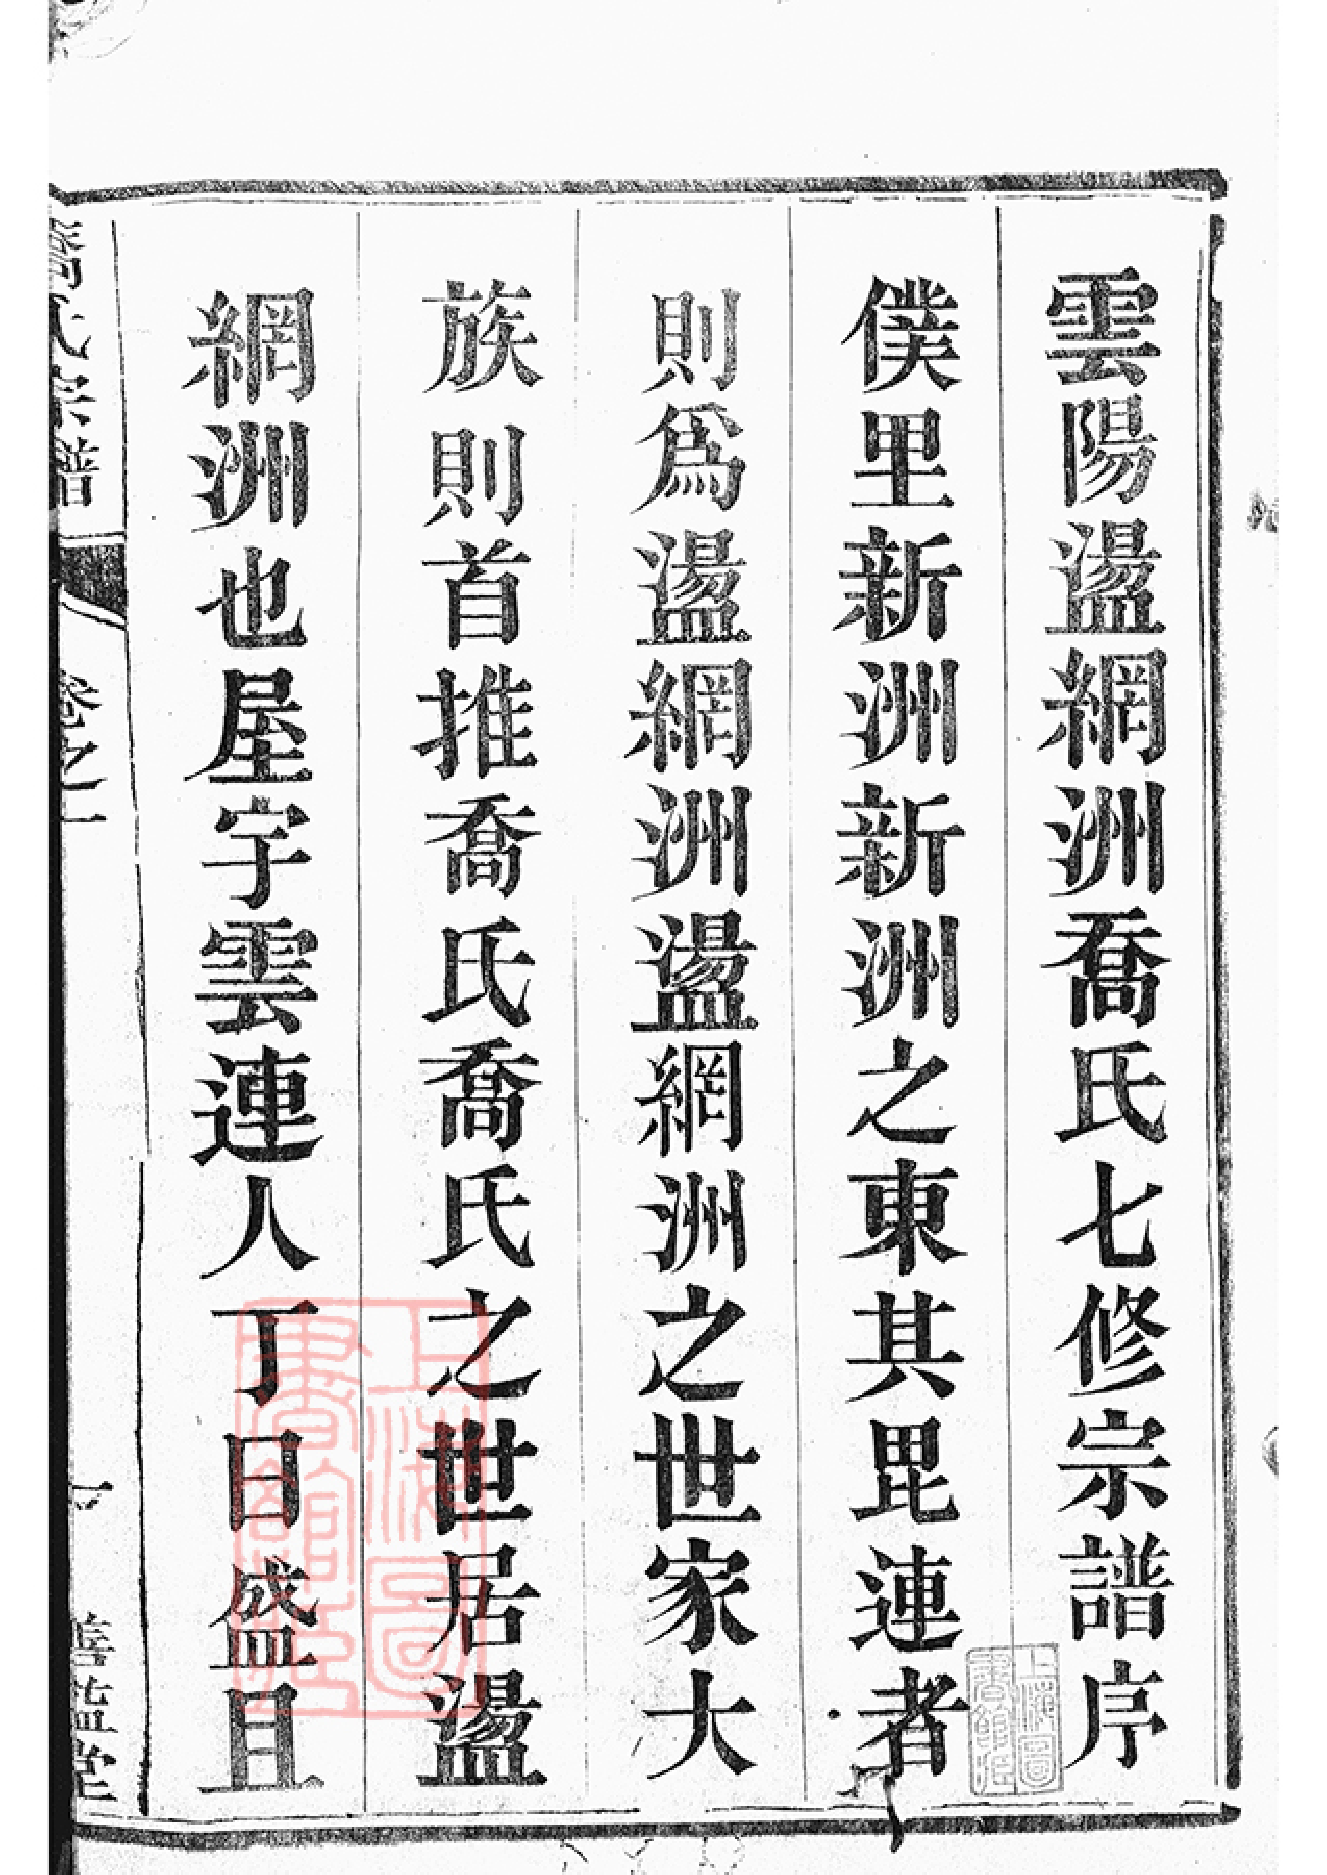 雲陽盪網洲喬氏七修宗譜序
僕里新洲新洲之東其毘連者
則爲盪網洲盪網洲之世家大
族則首推喬氏喬氏之世居盪
網洲也屋宇雲連人丁日盛且
氏宗譜
卷之一
上海圖書館藏
上海圖書館藏